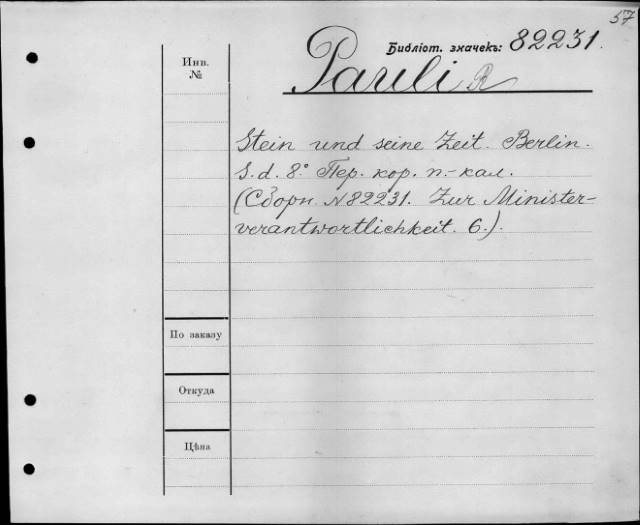 57
Библіот. значекъ: 82231.
Инв.
№
Pauli R
Stein und seine Zeit. Berlin.
S. d. 8.° Пер. кор. п.-кал.
(Сборн. N 82231. Zur Minister-
verantwortlichkeit. 6.).
По заказу
Откуда
Цѣна